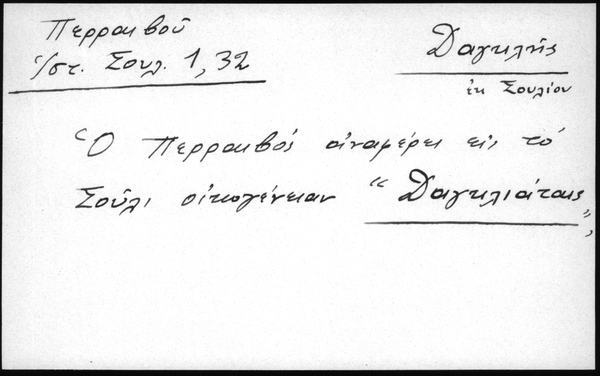 Περραιβοῦ
Ἱστ. Σουλ. 1, 32
Δαγκλῆς
ἐκ Σουλίου
Ὁ Περραιβός ἀναφέρει εἰς τό
Σοῦλι οἰκογένειαν "Δαγκλιάταις",